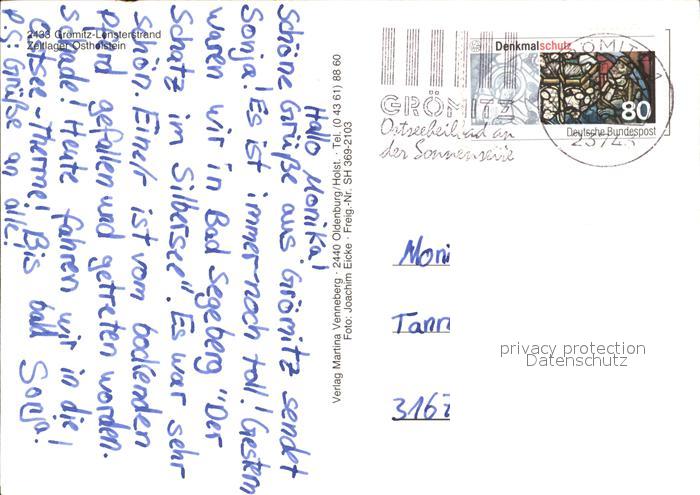 2433 Grömitz-Lensterstrand
Zeltlager Ostholstein
Hallo Monika!
Schöne Grüße aus Grömitz sendet
Sonja! Es ist immer noch toll! Gestern
waren wir in Bad Segeberg "Der
Schatz im Silbersee". Es war sehr
schön. Einer ist vom bockenden
Pferd gefallen und getreten worden.
Schade! Heute fahren wir in die
Ostsee-Therme! Bis bald Sonja!
P.S: Grüße an alle!
Verlag Martina Venneberg · 2440 Oldenburg/Holst. · Tel. (0 43 61) 88 60
Foto: Joachim Eicke · Freig.-Nr. SH 369-2103
GRÖMITZ
Ostseeheilbad an
der Sonnenseite
Denkmalschutz
80
Deutsche Bundespost
GRÖMITZ 1
23743
Moni
Tann
3167
privacy protection
Datenschutz